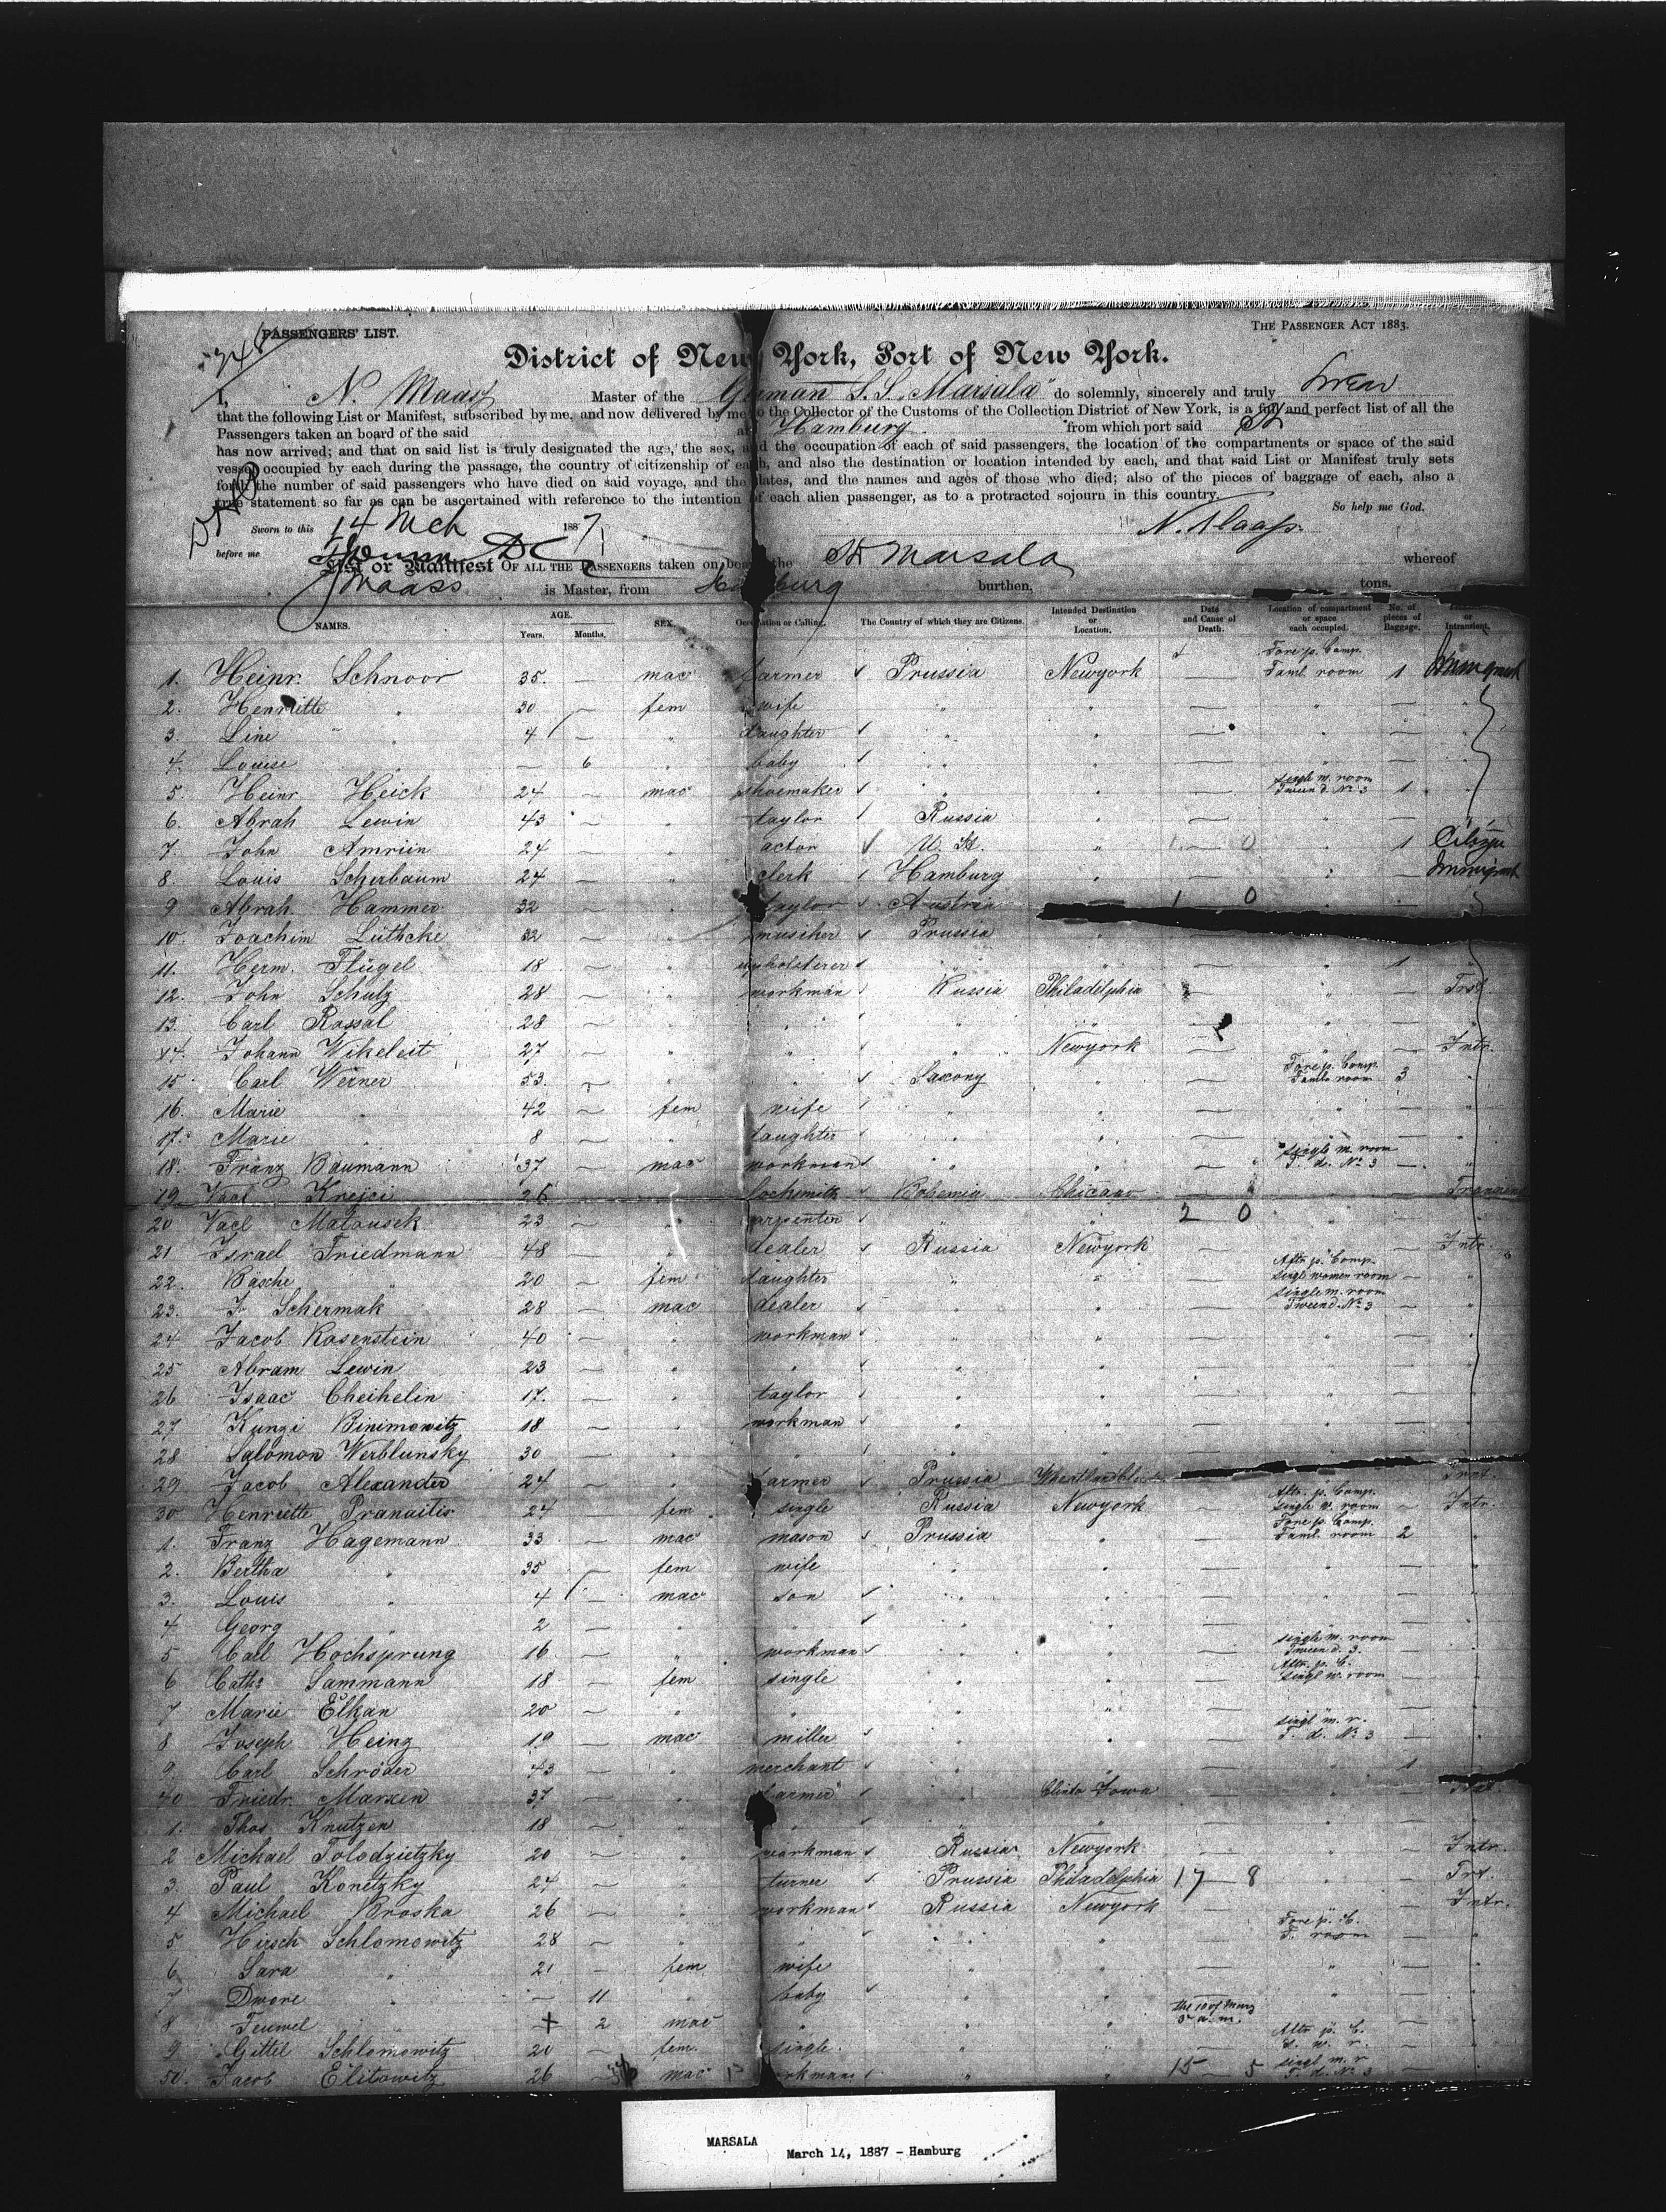 PASSENGERS' LIST.
THE PASSENGER ACT 1883.
District of New York, Port of New York.
I, N. Maass Master of the German S.S. "Marsala" do solemnly, sincerely and truly swear
that the following List or Manifest, subscribed by me, and now delivered by me to the Collector of the Customs of the Collection District of New York, is a full and perfect list of all the
Passengers taken an board of the said at Hamburg from which port said
has now arrived; and that on said list is truly designated the age, the sex, and the occupation of each of said passengers, the location of the compartments or space of the said
vessel occupied by each during the passage, the country of citizenship of each, and also the destination or location intended by each, and that said List or Manifest truly sets
forth the number of said passengers who have died on said voyage, and the dates, and the names and ages of those who died; also of the pieces of baggage of each, also a
true statement so far as can be ascertained with reference to the intention of each alien passenger, as to a protracted sojourn in this country.
So help me God.
Sworn to this 14 Mch 1887 N. Maass.
before me
List or Manifest OF ALL THE PASSENGERS taken on board the Marsala whereof
Maass is Master, from Hamburg burthen, tons.
NAMES. AGE. Years. Months. SEX. Occupation or Calling. The Country of which they are Citizens. Intended Destination or Location. Date and Cause of Death. Location of compartment or space each occupied. No. of pieces of Baggage. or Intransient.
1. Heinr. Schnoor 35. — mac farmer Prussia Newyork — Fore p. Comp. Faml. room 1 Immigrant
2. Henriette " 30 — fem wife " " — " — "
3. Line " 4 — " daughter " " — " — "
4. Louise " — 6 " baby " " — " — "
5. Heinr Heick 24 — mac shoemaker " " — single m. room Tween d. No 3 1 "
6. Abrah Lewin 43 — " taylor Russia " — " — "
7. John Amriin 24 — " actor U. St. " — 0 " 1 Citizen
8. Louis Scherbaum 24 — " clerk Hamburg " — " — Immigrant
9 Abrah. Hammer 32 — " taylor Austria 1 0 " —
10. Joachim Lüthcke 32 — " musiker Prussia "
11. Herm. Flügel 18 — " upholsterer " " — " 1 "
12. John Schulz 28 — " workman Russia Philadelphia — " — Trst.
13. Carl Rossal 28 — " " " " — " — "
14. Johann Wikeleit 27 — " " " Newyork — " — Intr.
15. Carl Werner 53. — " " Saxony " — Fore p. Comp. Famlr room 3 "
16. Marie " 42 — fem wife " " — " — "
17. Marie " 8 — " taughter " " — " — "
18. Franz Baumann 37 — mac workman " " — single m. room T. de. No 3 — "
19 Vacl Krejci 26 — " lochsmith Bohemia Chicago — " — Transient
20 Vacl Matousek 23 — " carpenter " " 2 0 " — "
21 Israel Friedmann 48 — " dealer Russia Newyork — " — Intr.
22. Basche " 20 — fem daughter " " — Aftr p. Comp. singl women room — "
23. J. Schermak 28 — mac dealer " " — single m. room Tween d. No 3 — "
24 Jacob Rosenstein 40 — " workman " " — " — "
25 Abram Lewin 23 — " " " " — " — "
26 Isaac Cheihelin 17. — " taylor " " — " — "
27 Kunzi Binimowitz 18 — " workman " " — " — "
28 Salomon Werblunsky 30 — " " " " — " — "
29 Jacob Alexander 24 — " farmer Prussia Trnt.
30 Henriette Pranaitis 24 — fem single Russia Newyork — Aftr. p. Comp. single w. room — Intr.
1. Franz Hagemann 33 — mac mason Prussia " — Fore p. Comp. Faml. room 2 "
2. Bertha " 35 — fem wife " " — " — "
3. Louis " 4 — mac son " " — " — "
4 Georg " 2 — " " " " — " — "
5 Carl Hochsprung 16 — " workman " " — single m. room Tween d. 3. — "
6 Cathr Sammann 18 — fem single " " — Aftr. p. C. singl w. room — "
7 Marie Elkan 20 — " " " " — " — "
8 Joseph Heinz 19 — mac miller " " — singl m. r. T. d. No 3 — "
9. Carl Schröder 43 — " merchant " " — " 1 "
40 Friedr. Marxen 37 — " farmer " Clinto Iowa — " — Trnt.
1. Thos Knutzen 18 — " " " " — " — "
2 Michael Tolodzietzky 20 — " workman Russia Newyork — " — Intr.
3. Paul Konetzky 24 — " turner Prussia Philadelphia 17 — 8 " — Trt.
4 Michael Broska 26 — " workman Russia Newyork — " — Intr.
5 Hirsch Schlomowitz 28 — " " " " — Fore p. C. F. room — "
6 Sara " 21 — fem wife " " — " — "
7 Dwore " — 11 " baby " " — " — "
8 Teuwel " + 2 mac " " " the 10 of Marz 3 a. m. " — "
9 Gittel Schlomowitz 20 — fem. single " " — Aftr p. C. s. w. r. — "
50. Jacob Elitowitz 26 mac workman " " 15 — 5 singl m. r T. d. No 3 — "
MARSALA
March 14, 1887 - Hamburg